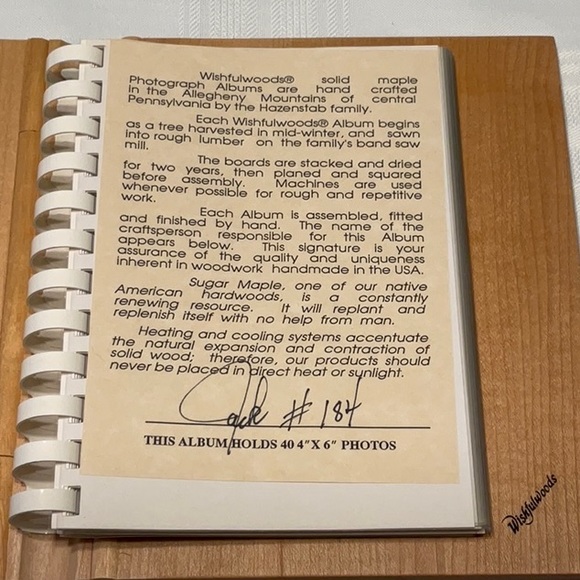 Wishfulwoods® solid maple
Photograph Albums are hand crafted
in the Allegheny Mountains of central
Pennsylvania by the Hazenstab family.
Each Wishfulwoods® Album begins
as a tree harvested in mid-winter, and sawn
into rough lumber on the family's band saw
mill.
The boards are stacked and dried
for two years, then planed and squared
before assembly. Machines are used
whenever possible for rough and repetitive
work.
Each Album is assembled, fitted
and finished by hand. The name of the
craftsperson responsible for this Album
appears below. This signature is your
assurance of the quality and uniqueness
inherent in woodwork handmade in the USA.
Sugar Maple, one of our native
American hardwoods, is a constantly
renewing resource. It will replant and
replenish itself with no help from man.
Heating and cooling systems accentuate
the natural expansion and contraction of
solid wood; therefore, our products should
never be placed in direct heat or sunlight.
Jack # 184
THIS ALBUM HOLDS 40 4"X 6" PHOTOS
Wishfulwoods